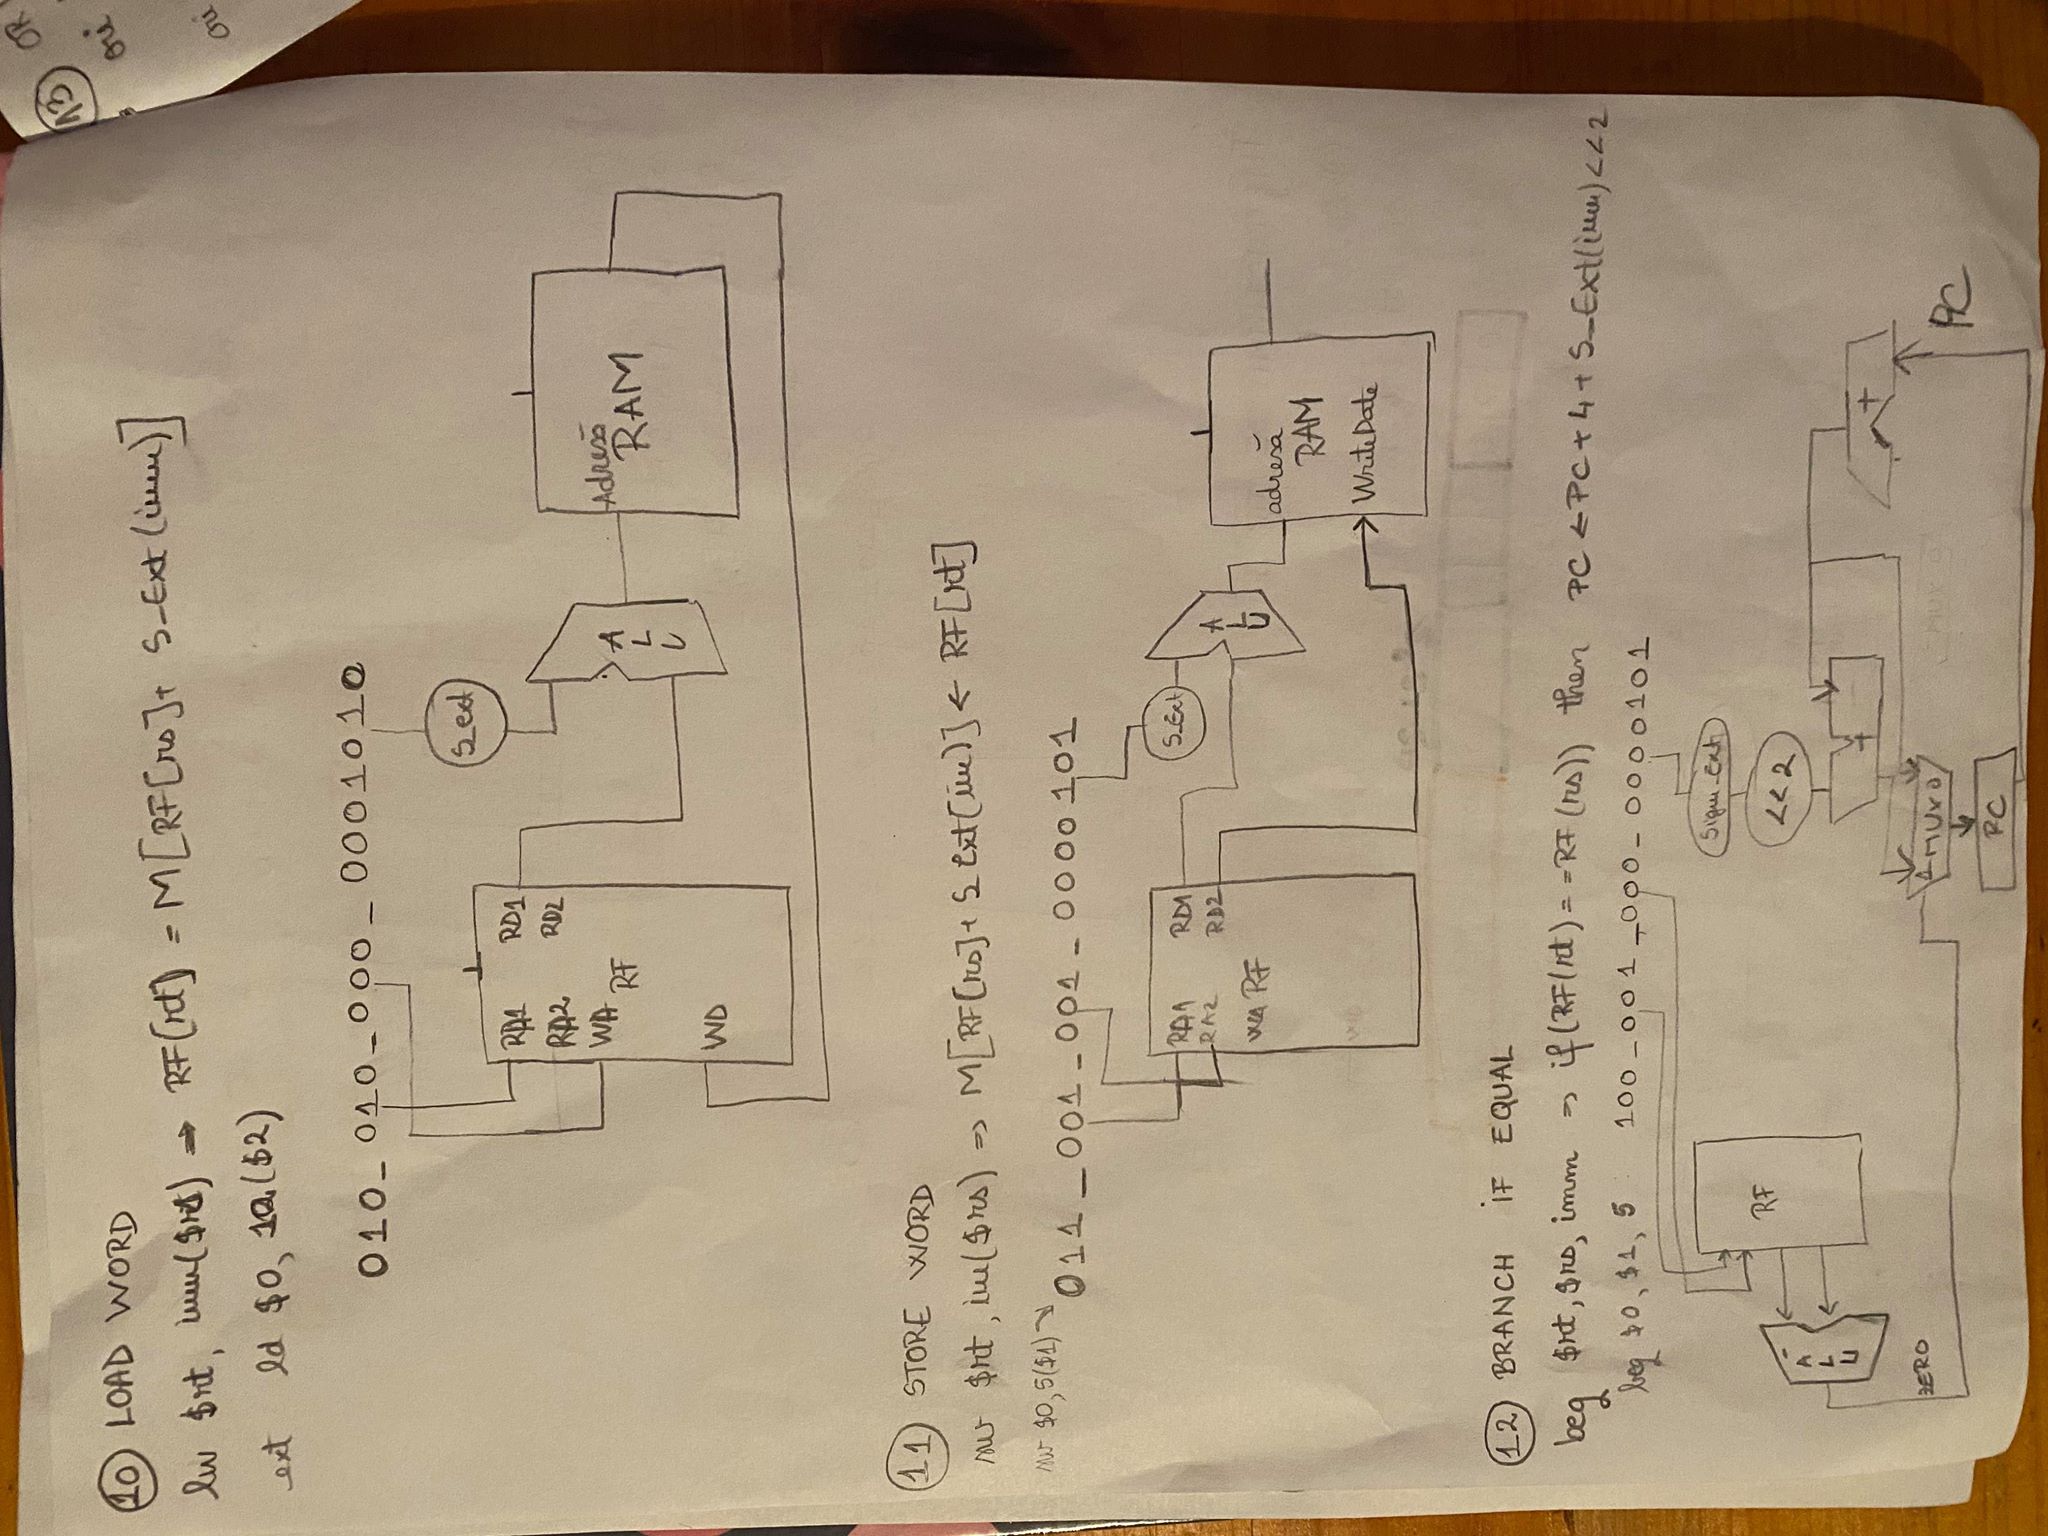 10 LOAD WORD
lw $rt, imm($rs) → RF(rt) = M[RF[rs]+ S_Ext(imm)]
ext ld $0, 10($2)
010_010_000_0001010
S_ext
RA1 RD1
RA2 RD2
WA RF
WD
ALU
Adresă
RAM
11 STORE WORD
sw $rt, im($rs) => M[RF[rs]+S_ext(im)] ← RF[rt]
sw $0,5($1) ↘ 011_001_001_0000101
S_Ext
RA1 RD1
RA2 RD2
WA RF
ALU
adresă
RAM
WriteDate
12 BRANCH IF EQUAL
beq $rt,$rs,imm => if(RF(rt)==RF(rs)) then PC ← PC+4+S_Ext(imm)<<2
beq $0,$1,5 100_001_000_0000101
Sign_ext
<<2
RF
ALU
ZERO
+
+
PC
PC
13